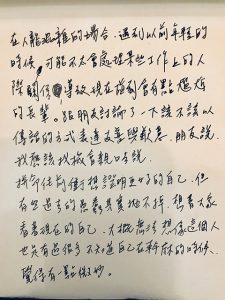 在人龍混雜的場合,遇到以前年輕的
時候,可能不太會處理某些工作上的人
際關係,導致現在碰到會有點尷尬
的長輩。跟朋友討論了一下該不該以
傳話的方式表達友善與歉意,朋友說
我應該找機會親口說
拼命往前衝想證明更好的自己,但
有些過去的愚蠢真實抹不掉,想著大家
看著現在的自己,大概無法想像這個人
也是有過很多不知道自己在幹麻的時候,
覺得有點微妙。